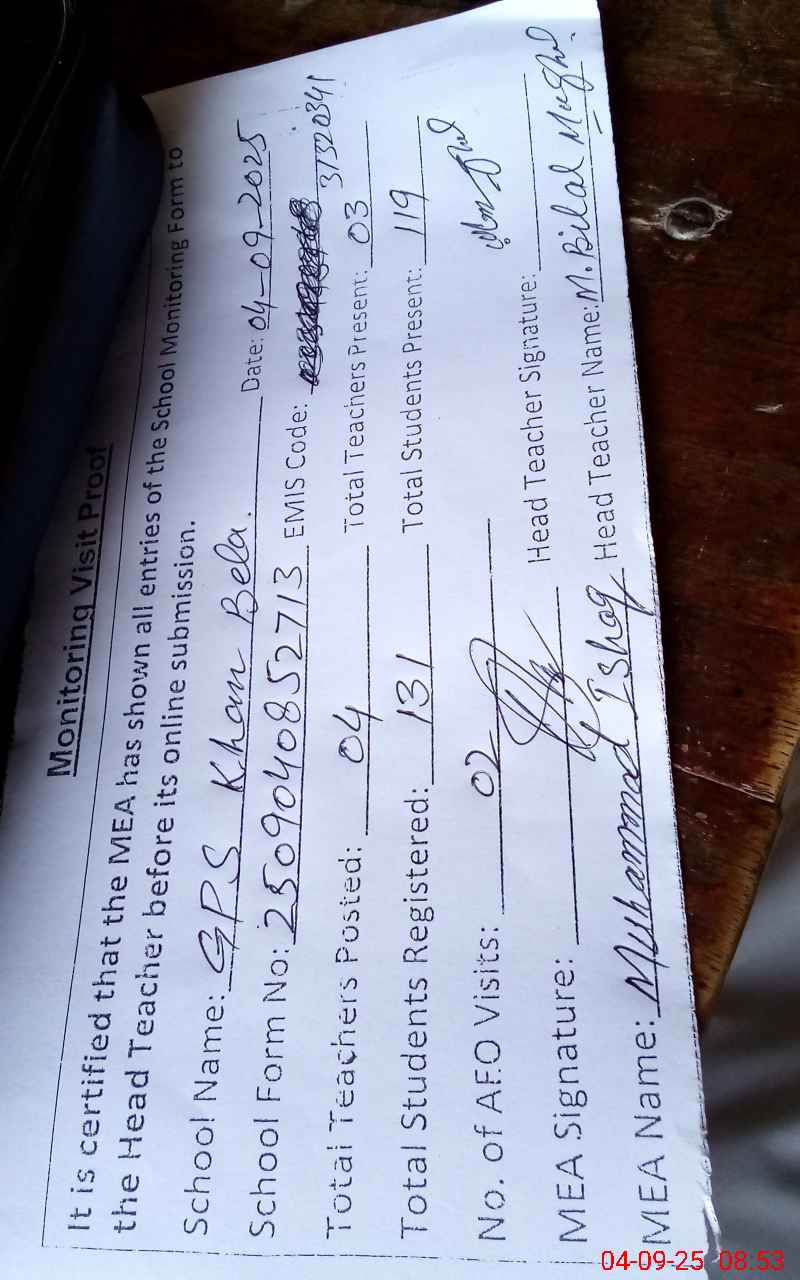 Monitoring Visit Proof
It is certified that the MEA has shown all entries of the School Monitoring Form to
the Head Teacher before its online submission.
School Name: GPS Kham Bela. Date: 04-09-2025
School Form No: 2509040852713 EMIS Code: 31320341
Total Teachers Posted: 04 Total Teachers Present: 03
Total Students Registered: 131 Total Students Present: 119
No. of AEO Visits: 02
MEA Signature: Head Teacher Signature:
MEA Name: Muhammad Ishaq Head Teacher Name: M. Bilal Mughal
04-09-25 08:53